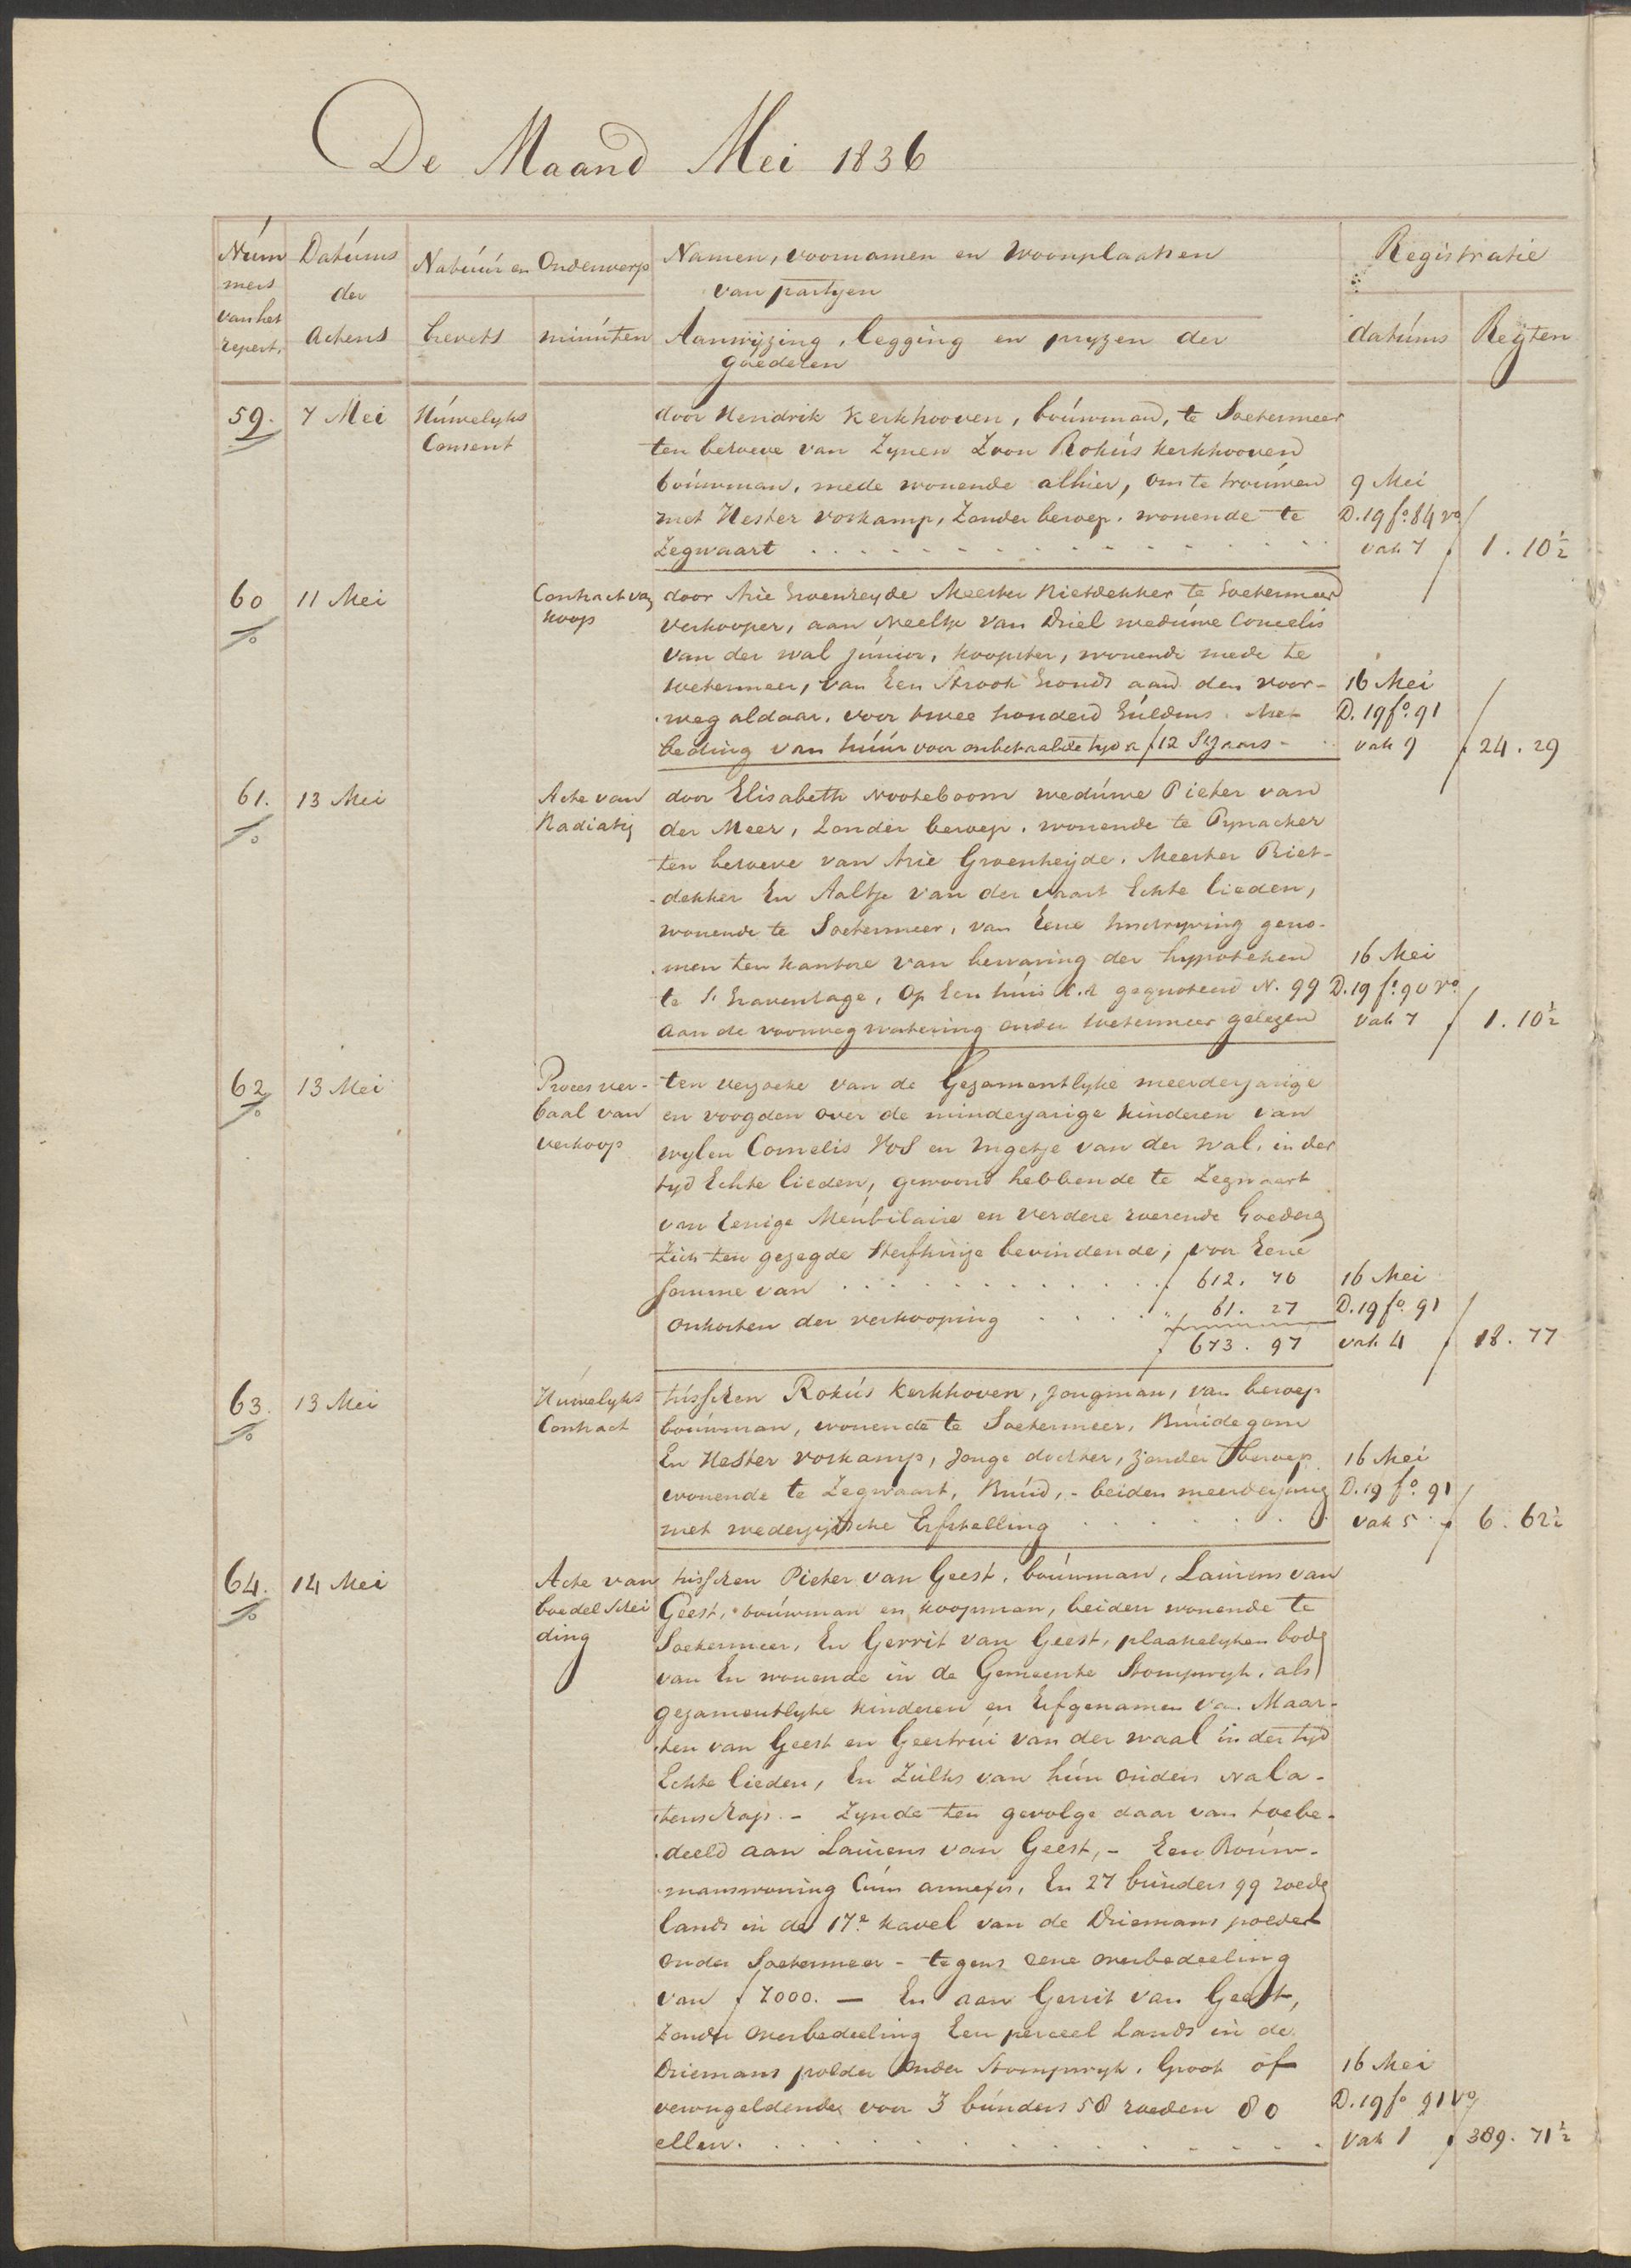 De Maand Mei 1836
Núm
mers
van het
repert.
Datúms
der
actens
Natúúr en Onderwerp
brevets
minúten
Namen, voornamen en woonplaatsen
van partyen
Aanwyzing, legging en pryzen der
goederen
Registratie
datúms
Regten
59.
7 Mei
Húwelyks
Consent
door Hendrik Kerkhooven, boúwman, te Soetermeer
ten behoeve van Zynen Zoon Rokús Kerkhooven
boúwman, mede wonende alhier, om te troúwen
met Hester Vorkamp, Zonder beroep, wonende te
Zegwaart
9 Mei
D. 19 fo. 84 vo
vak 7
f 1. 10½
60
11 Mei
Contract van
koop
door Arie Groenheyde Meester Rietdekker te Soetermeer
Verkooper, aan Neeltje van Driel wedúwe Cornelis
van der wal júnior, koopster, wonende mede te
Soetermeer, van Een Strook Gronds aan den voor-
weg aldaar, voor twee honderd Gúldens. Met
beding van húúr voor onbepaalde tyd a f 12 S'Jaars
16 Mei
D. 19 fo. 91
vak 9
f 24. 29
61.
13 Mei
Acte van
Radiatie
door Elisabeth Nooteboom wedúwe Pieter van
der Meer, Zonder beroep, wonende te Pynacker
ten behoeve van Arie Groenheijde, Meester Riet-
dekker En Aaltje van der Vaart Echte lieden,
wonende te Soetermeer, van Eene Inschryving geno-
men ten kantore van bewaring der hypotheken
te S' Gravenhage, Op Een húis c.a gequoteerd N. 99
aan de voorweg watering onder Soetermeer gelegen
16 Mei
D. 19 fo. 90 vo.
vak 7
f 1. 10½
62
13 Mei
Proces ver-
baal van
verkoop
ten verzoeke van de Gezamentlyke meerderjarige
en voogden over de minderjarige kinderen van
wylen Cornelis Vos en Ingetje van der Wal, in der
tyd Echte lieden, gewoond hebbende te Zegwaart
van Eenige Meúbilaire en verdere roerende Goederen
Zich ten gezegde Sterfhúize bevindende, voor Eene
somme van f 612. 70
onkosten der verkooping " 61. 27
f 673. 97
16 Mei
D. 19 fo. 91
vak 4
f 18. 77
63.
13 Mei
Húwelyks
Contract
tússchen Rokús Kerkhoven, jongman, van beroep
boúwman, wonende te Soetermeer, Brúidegom
En Hester Vorkamp, Jonge dochter, zonder beroep
wonende te Zegwaart, Brúid, - beiden meerderjarig
met wederzydsche Erfstelling
16 Mei
D. 19 fo. 91
vak 5
f 6. 62½
64.
14 Mei
Acte van
boedel Schei
ding
tússchen Pieter van Geest, boúwman, Laúrens van
Geest, boúwman en koopman, beiden wonende te
Soetermeer, En Gerrit van Geest, plaatselyken bode
van En wonende in de Gemeente Stompwyk, als
gezamentlyke kinderen en Erfgenamen van Maar-
ten van Geest en Geertrúi van der waal in der tyd
Echte lieden, En Zúlks van hún oúders Nala-
tenschap. - Zynde ten gevolge daar van toebe-
deeld aan Laúrens van Geest, - Een Boúw-
manswoning Cúm annexis, En 27 búnders 99 roede
lands in de 17e kavel van de Driemans polder
onder Soetermeer - tegens eene overbedeeling
van f 7000. - En aan Gerrit van Geest,
Zonder overbedeeling Een perceel lands in de
Driemans polder onder Stompwyk. Groot of
verongeldende voor 3 búnders 58 roeden 80
ellen.
16 Mei
D. 19 fo 91 vo
vak 1
f 389. 71½